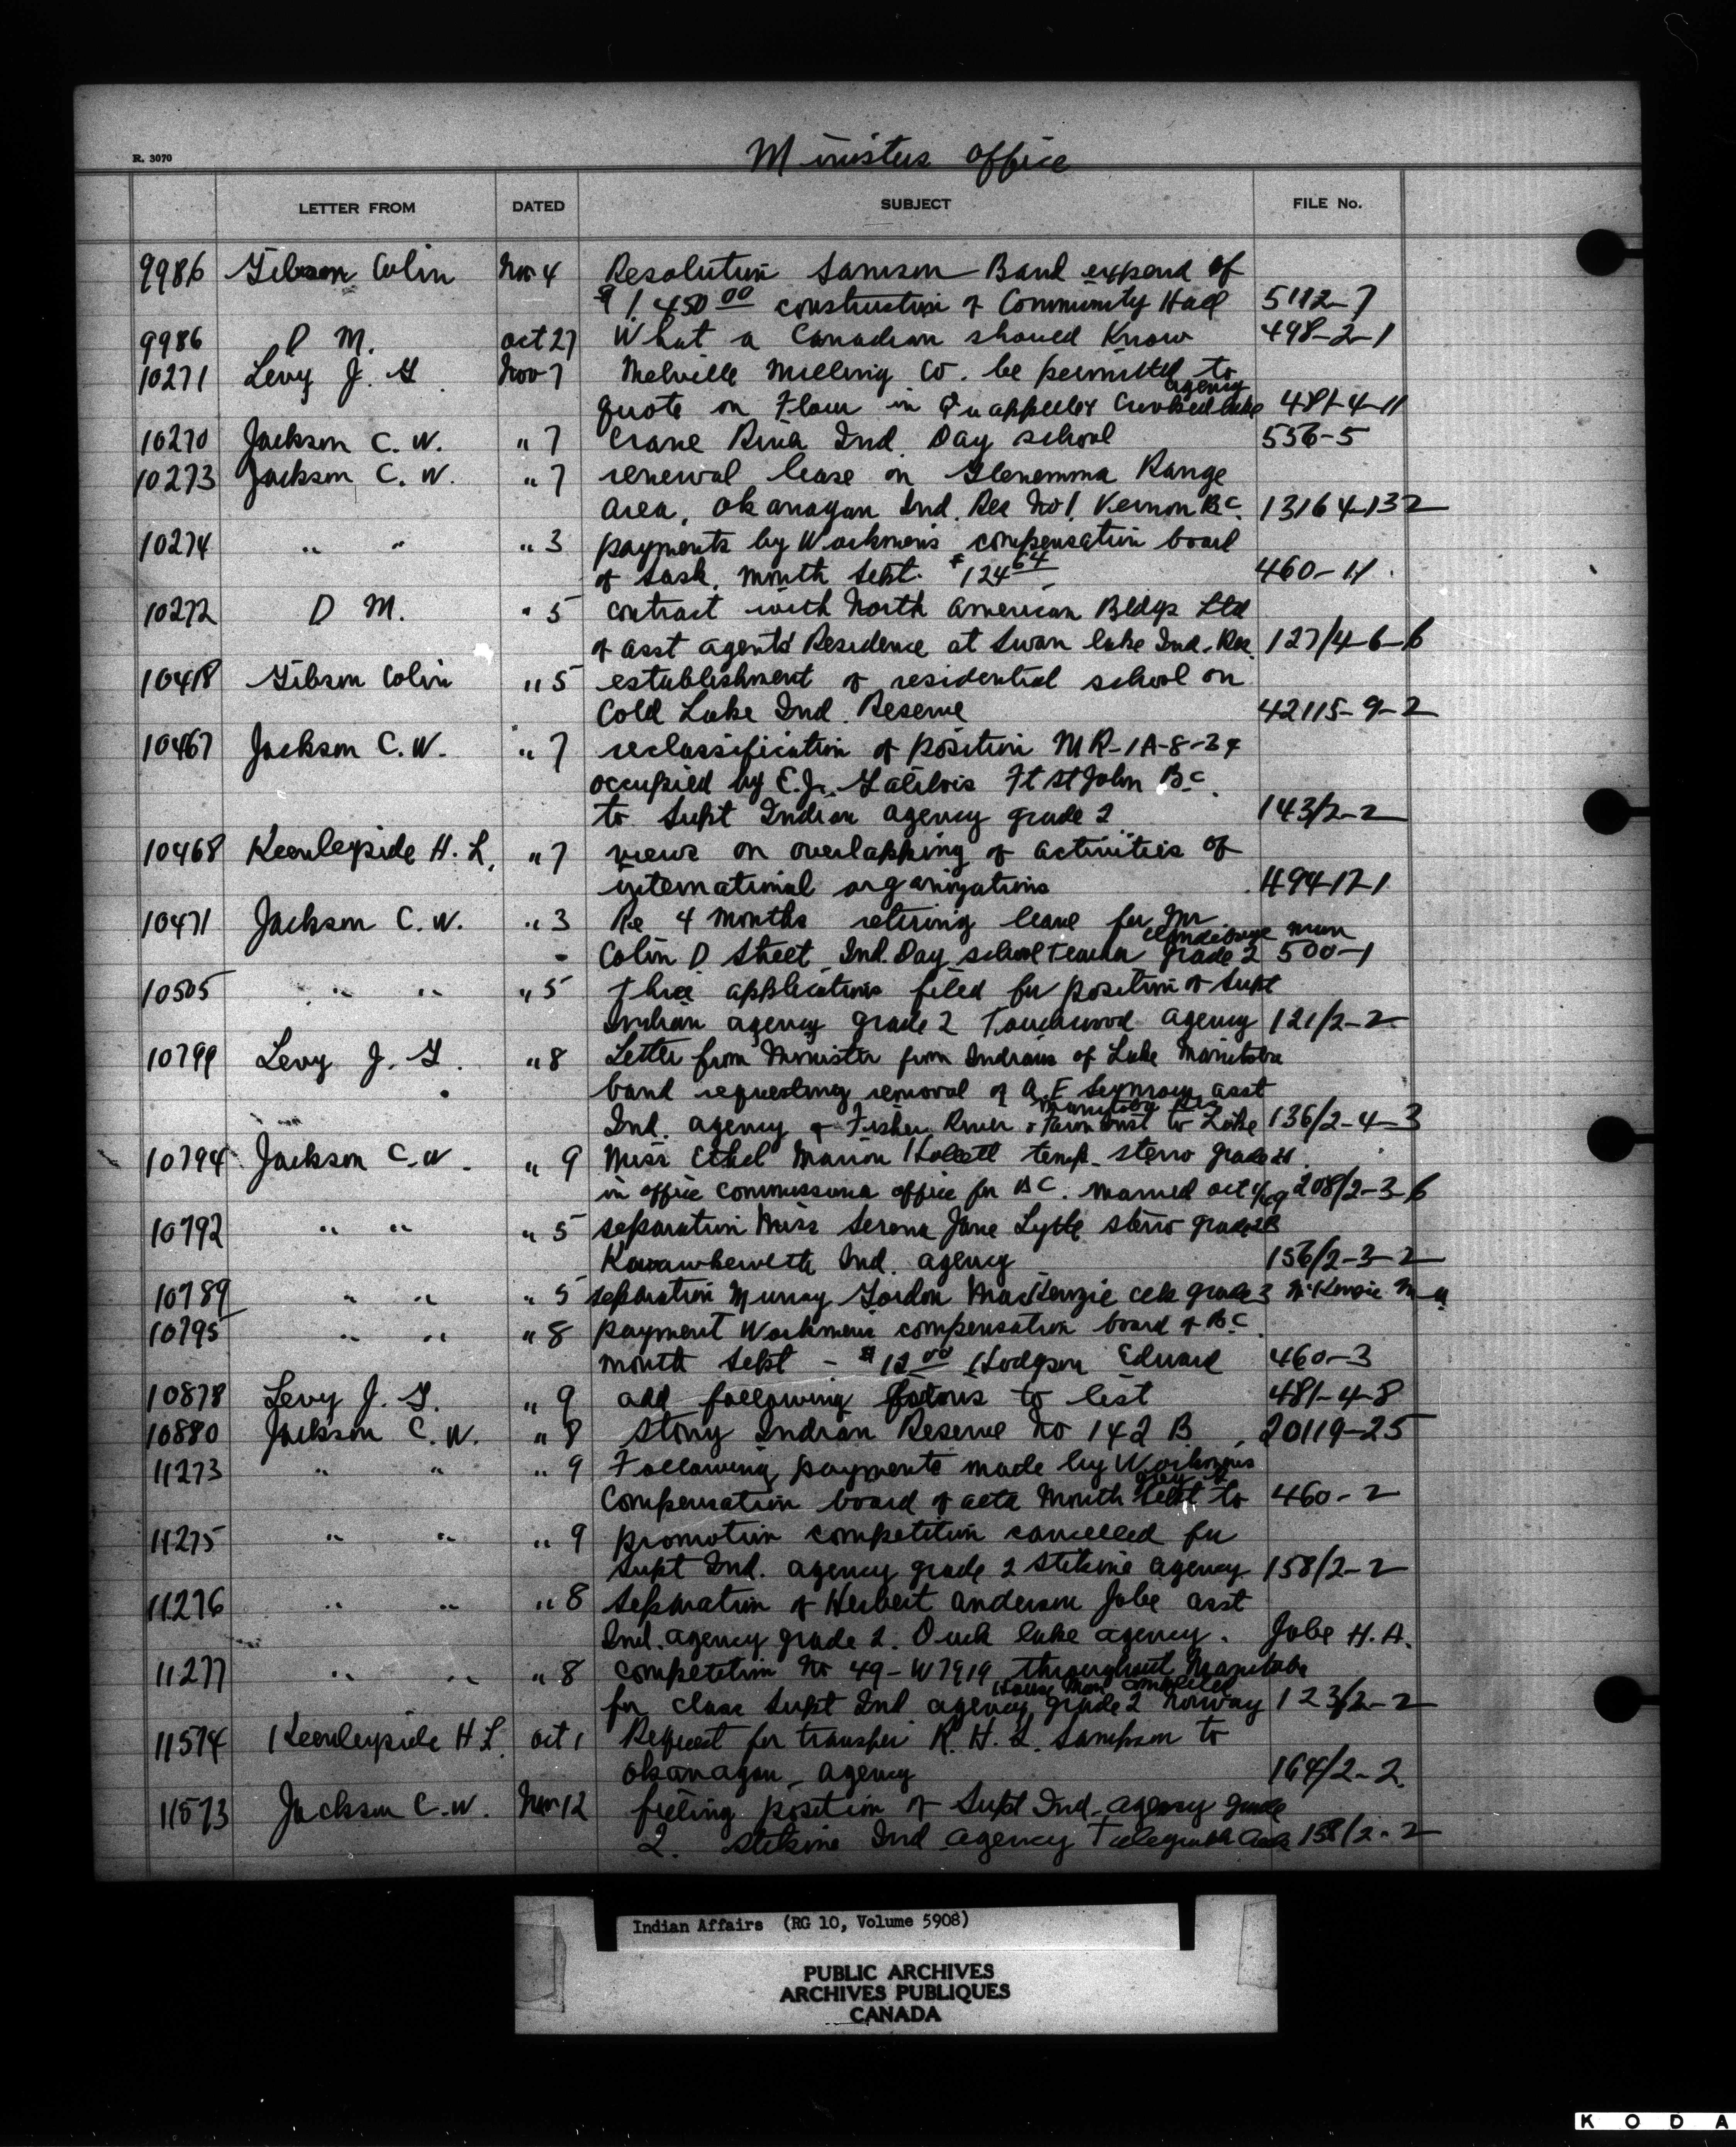 Ministers office
R. 3070
LETTER FROM DATED SUBJECT FILE No.
9986 Gibson Colin Nov 4 Resolution Samson Band expend of
$1,450 00 construction of Community Hall 5112-7
9986 D M. Oct 27 What a Canadian should Know 498-2-1
10271 Levy J. G Nov 7 Melville Milling Co. be permitted to
agency
quote on Flour in Qu'appelle & Crooked Lake 481-4-11
10270 Jackson C. W. " 7 Crane River Ind. Day school 556-5
10273 Jackson C. W. " 7 renewal lease on Glenemma Range
Area, Okanagan Ind. Res No 1. Vernon BC. 13164-132
10274 " " " 3 payments by Workmens compensation board
of Sask. month Sept. $124 64 460-11.
10272 D M. " 5 contract with North American Bldgs Ltd
of asst agents Residence at Swan lake Ind. Res. 127/4-6-6
10418 Gibson Colin " 5 establishment of residential school on
Cold Lake Ind. Reserve 42115-9-2
10467 Jackson C. W. " 7 reclassification of position MR-1A-8-34
occupied by E. J. Galibois Ft St John BC.
to Supt Indian agency grade 2 143/2-2
10468 Keenleyside H. L. " 7 views on overlapping of activities of
international organizations 494-17-1
10471 Jackson C. W. " 3 Re 4 months retiring leave for Mr
Colin D Street Ind. Day school Teacher grade 2 500-1
10505 " " " 5 three applications filed for position of Supt
Indian agency grade 2 Touchwood agency 121/2-2
10799 Levy J. G. " 8 Letter from Minister from Indians of Lake Manitoba
band requesting removal of A. E Seymour asst
Manitoba Res
Ind. agency of Fisher River & Farm Inst to Lake 136/2-4-3
10794 Jackson C. W. " 9 Miss Ethel Marion Hollett temp. steno grade
in office Commissioner office for BC. married Oct 208/2-3-6
10792 " " " 5 separation Miss Serena Jane Lytle steno grade 2B
Ind. agency 156/2-3-2
10789 " " " 5 separation Murray Gordon MacKenzie clk grade 3 McKenzie M
10795 " " " 8 payment Workmens compensation board of BC.
month Sept - $12 00 Hodgson Edward 460-3
10878 Levy J. G. " 9 add following to list 481-4-8
10880 Jackson C. W. " 8 Stony Indian Reserve No 142 B 20119-25
11273 " " " 9 Following payments made by Workmens
Compensation board of alta Month Sept to 460-2
11275 " " " 9 promotion competition cancelled for
Supt Ind. agency grade 2 Stikine agency 158/2-2
11276 " " " 8 Separation of Herbert Anderson Jobe asst
Ind. agency grade 2. Duck lake agency. Jobe H. A.
11277 " " " 8 competition No 49-W7919 throughout Manitoba
House Man completed
for class Supt Ind agency grade 2 Norway 123/2-2
11574 Keenleyside H L. Oct 1 Request for transfer R. H. S. Sampson to
Okanagan agency 164/2-2.
11573 Jackson C. W. Nov 12 filling position of Supt Ind. agency grade
2. Stikine Ind agency Telegraph Creek 158/2-2
Indian Affairs (RG 10, Volume 5908)
PUBLIC ARCHIVES
ARCHIVES PUBLIQUES
CANADA
KODA